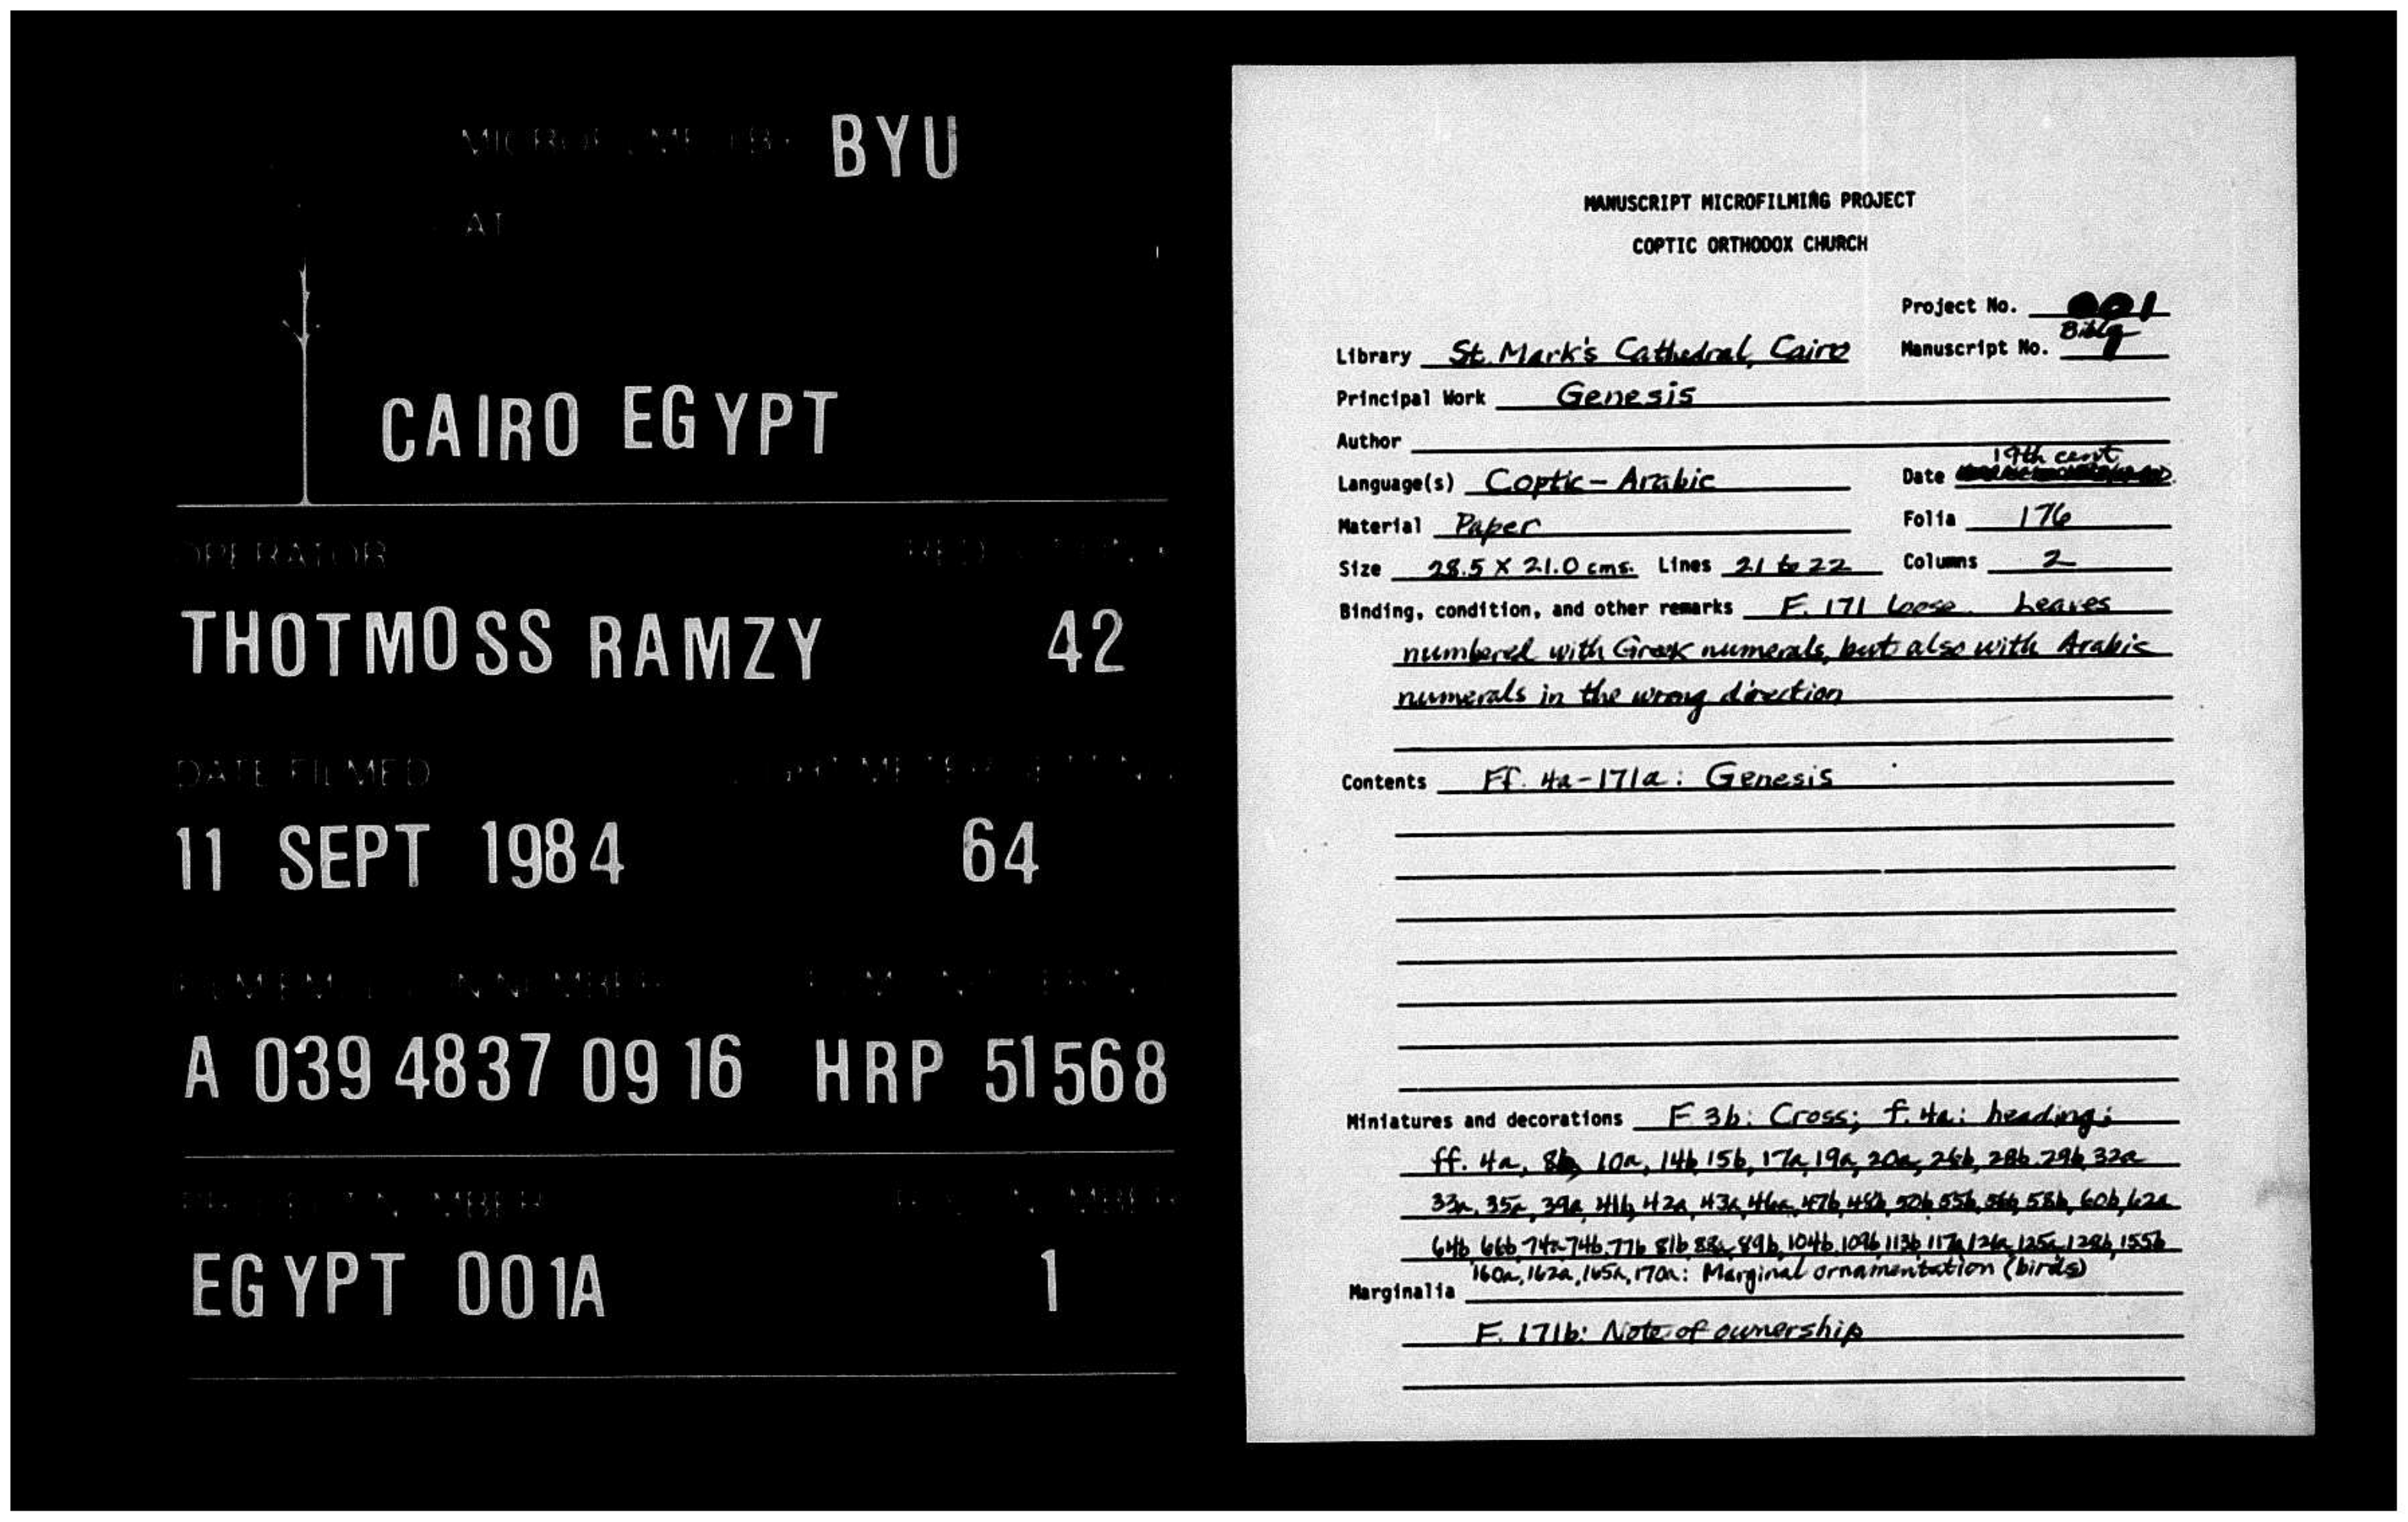 BYU
AT
CAIRO EGYPT
OPERATOR
THOTMOSS RAMZY 42
DATE FILMED
11 SEPT 1984 64
A 039 4837 09 16 HRP 51568
EGYPT 001A 1
MANUSCRIPT MICROFILMING PROJECT
COPTIC ORTHODOX CHURCH
Project No. 001
Library St. Mark's Cathedral, Cairo Manuscript No.
Principal Work Genesis
Author
19th cent
Language(s) Coptic - Arabic Date
Material Paper Folia 176
Size 28.5 X 21.0 cms. Lines 21 to 22 Columns 2
Binding, condition, and other remarks F. 171 loose. Leaves
numbered with Greek numerals, but also with Arabic
numerals in the wrong direction
Contents Ff. 4a-171a: Genesis
Miniatures and decorations F 3b: Cross; f. 4a: heading;
ff. 4a, 8b, 10a, 14b, 15b, 17a, 19a, 20a, 28b, 29b, 32a
33a, 35a, 39a, 41b, 42a, 43a, 47b, 50b, 55b, 58b, 60b, 62a
64b, 66b, 74a, 74b, 77b, 81b, 89b, 104b, 109b, 113b, 155b
160a, 162a, 165a, 170a: Marginal ornamentation (birds)
Marginalia
F. 171b: Note of ownership